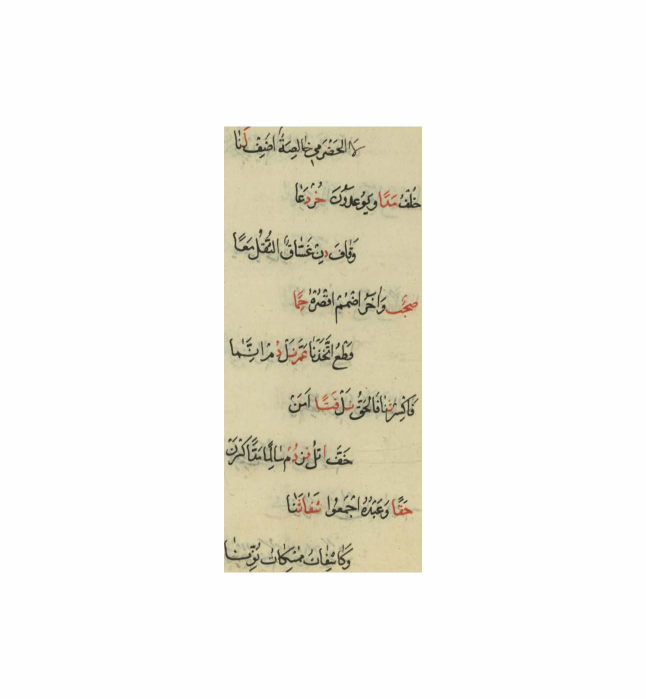 لا الحَضْرَمِي خَالِصَةُ اَضِفْ لَنَا
خُلْفُ مَدًا وَيُوعَدُونَ حُزْ دَعَا
وَقَافَ دِنْ غَسَّاقُ الثِّقْلُ مَعًا
صَحْب وَاخَرُ اضْمُمِ اقْصُرْهُ حِمًا
قَطْعُ اتَّخَذْنَا عَمَّ نَلْ دُمْ اِنَّمَا
فَاكْسِرْ ثَنَا فَالحَقُّ نَلْ فَتًا اَمَنْ
خَفَّ اتْلُ فِزْ دُمْ سَالِمًا مُدَّ اكْسِرَنْ
حَقًّا وَعَبْدَهُ اجْمَعُوا شَفَا ثَنَا
وَكَاشِفَاتُ مُمْسِكَاتُ نَوِّنَا